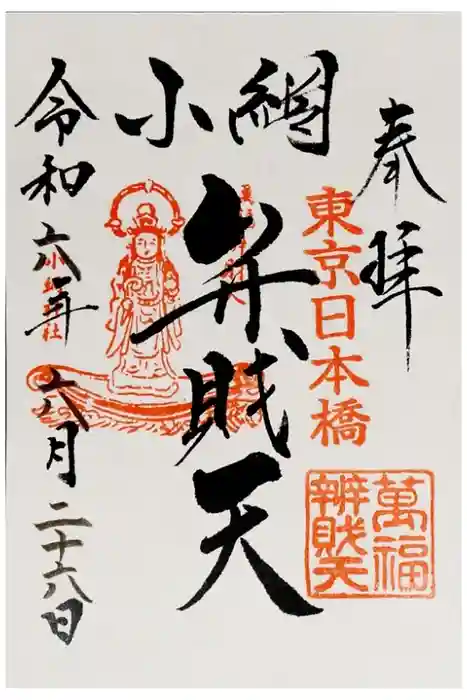 奉拝
東京日本橋
萬福
辨戝天
小網
弁戝天
令和六年六月二十六日
小網神社